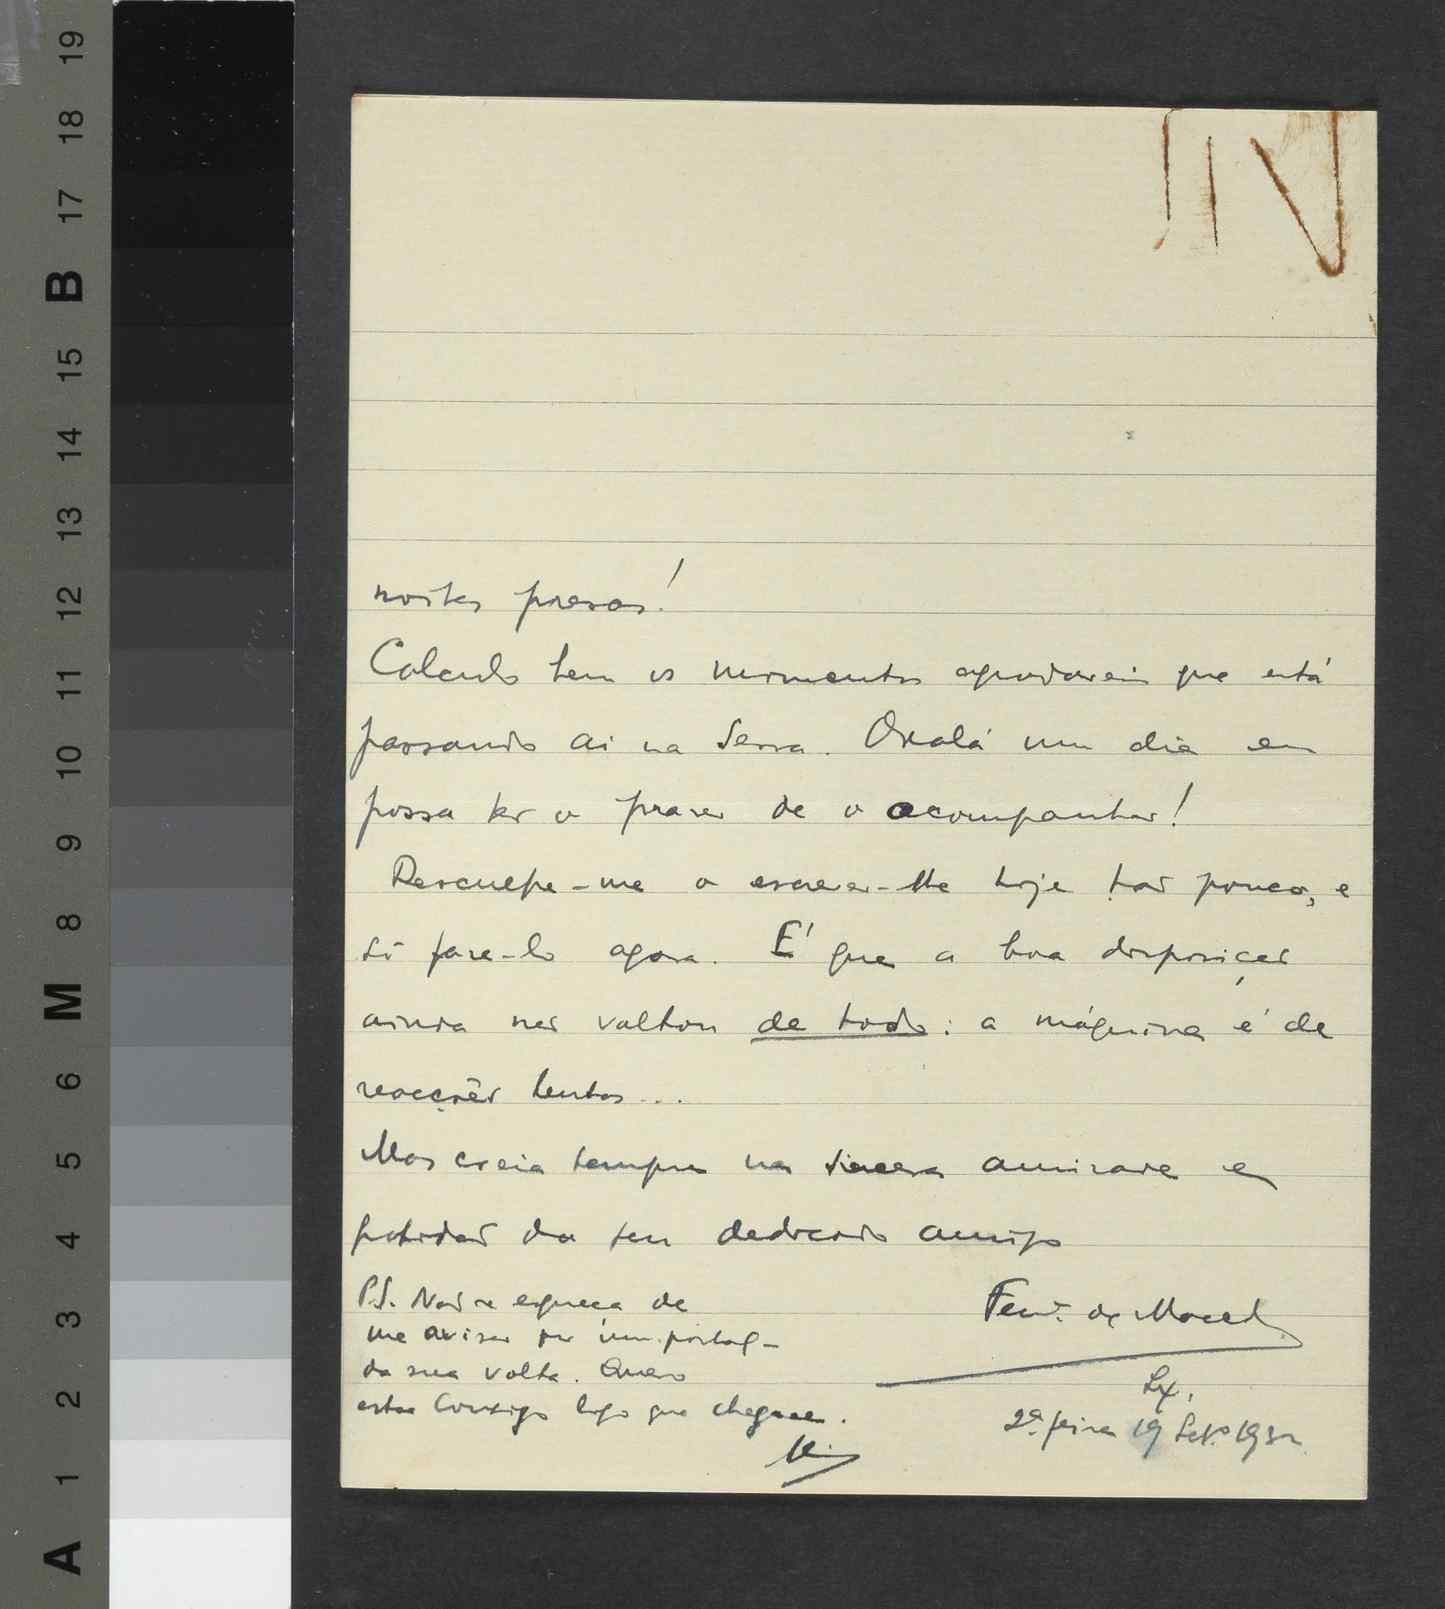 noites presas!
Calculo bem os momentos agradáveis que está
passando aí na Serra. Oxalá um dia eu
possa ter o prazer de o acompanhar!
Desculpe-me o escrever-lhe hoje tão pouco, e
só faze-lo agora. É que a boa disposição
ainda não voltou de todo: a máquina é de
reacções lentas...
Mas creia sempre na sincera amizade e
gratidão do seu dedicado amigo
P.S. Não se esqueça de
me avisar por um postal
da sua volta. Quero
estar Consigo logo que chegue.
Fern. de Macedo
Lx,
2ª feira 19 Set.º 1932
A 1 2 3 4 5 6 M 8 9 10 11 12 13 14 15 B 17 18 19